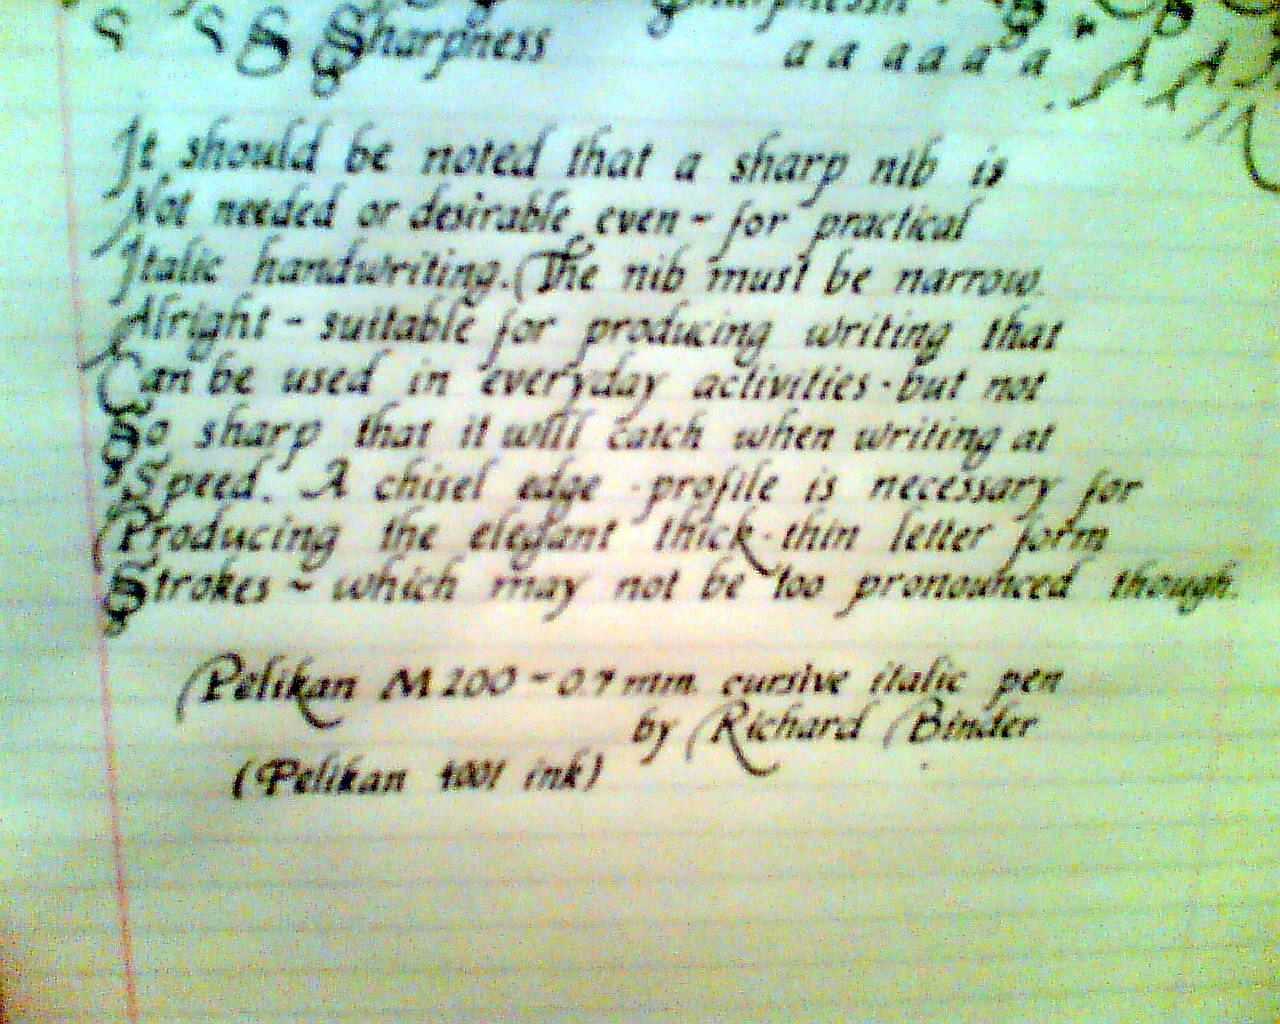 S S S Sharpness
a a a a a a A A
It should be noted that a sharp nib is
Not needed or desirable even - for practical
Italic handwriting. The nib must be narrow
Alright - suitable for producing writing that
Can be used in everyday activities - but not
So sharp that it will catch when writing at
Speed. A chisel edge - profile is necessary for
Producing the elegant thick - thin letter form
Strokes - which may not be too pronounced though.
Pelikan M200 - 0.7 mm. cursive italic pen
by Richard Binder
(Pelikan 4001 ink)